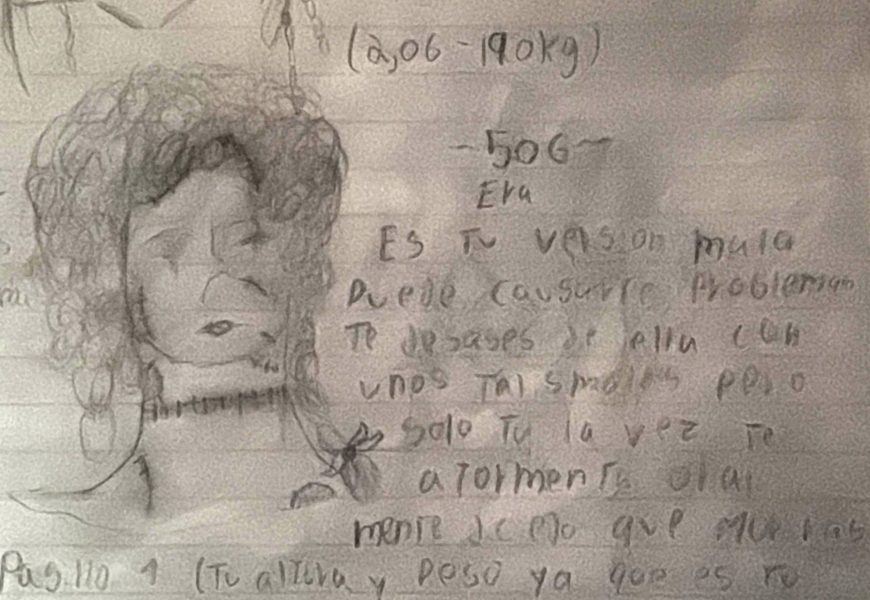 (2,06 - 190kg)
- 506 -
Era
Es Tu version mala
Puede causarte Problemas
Te desases de ella con
unos Talismanes pero
solo Tu la vez Te
aTormenTa
mente que mueras
Pasillo 1 (Tu alTura y peso ya que es Tu